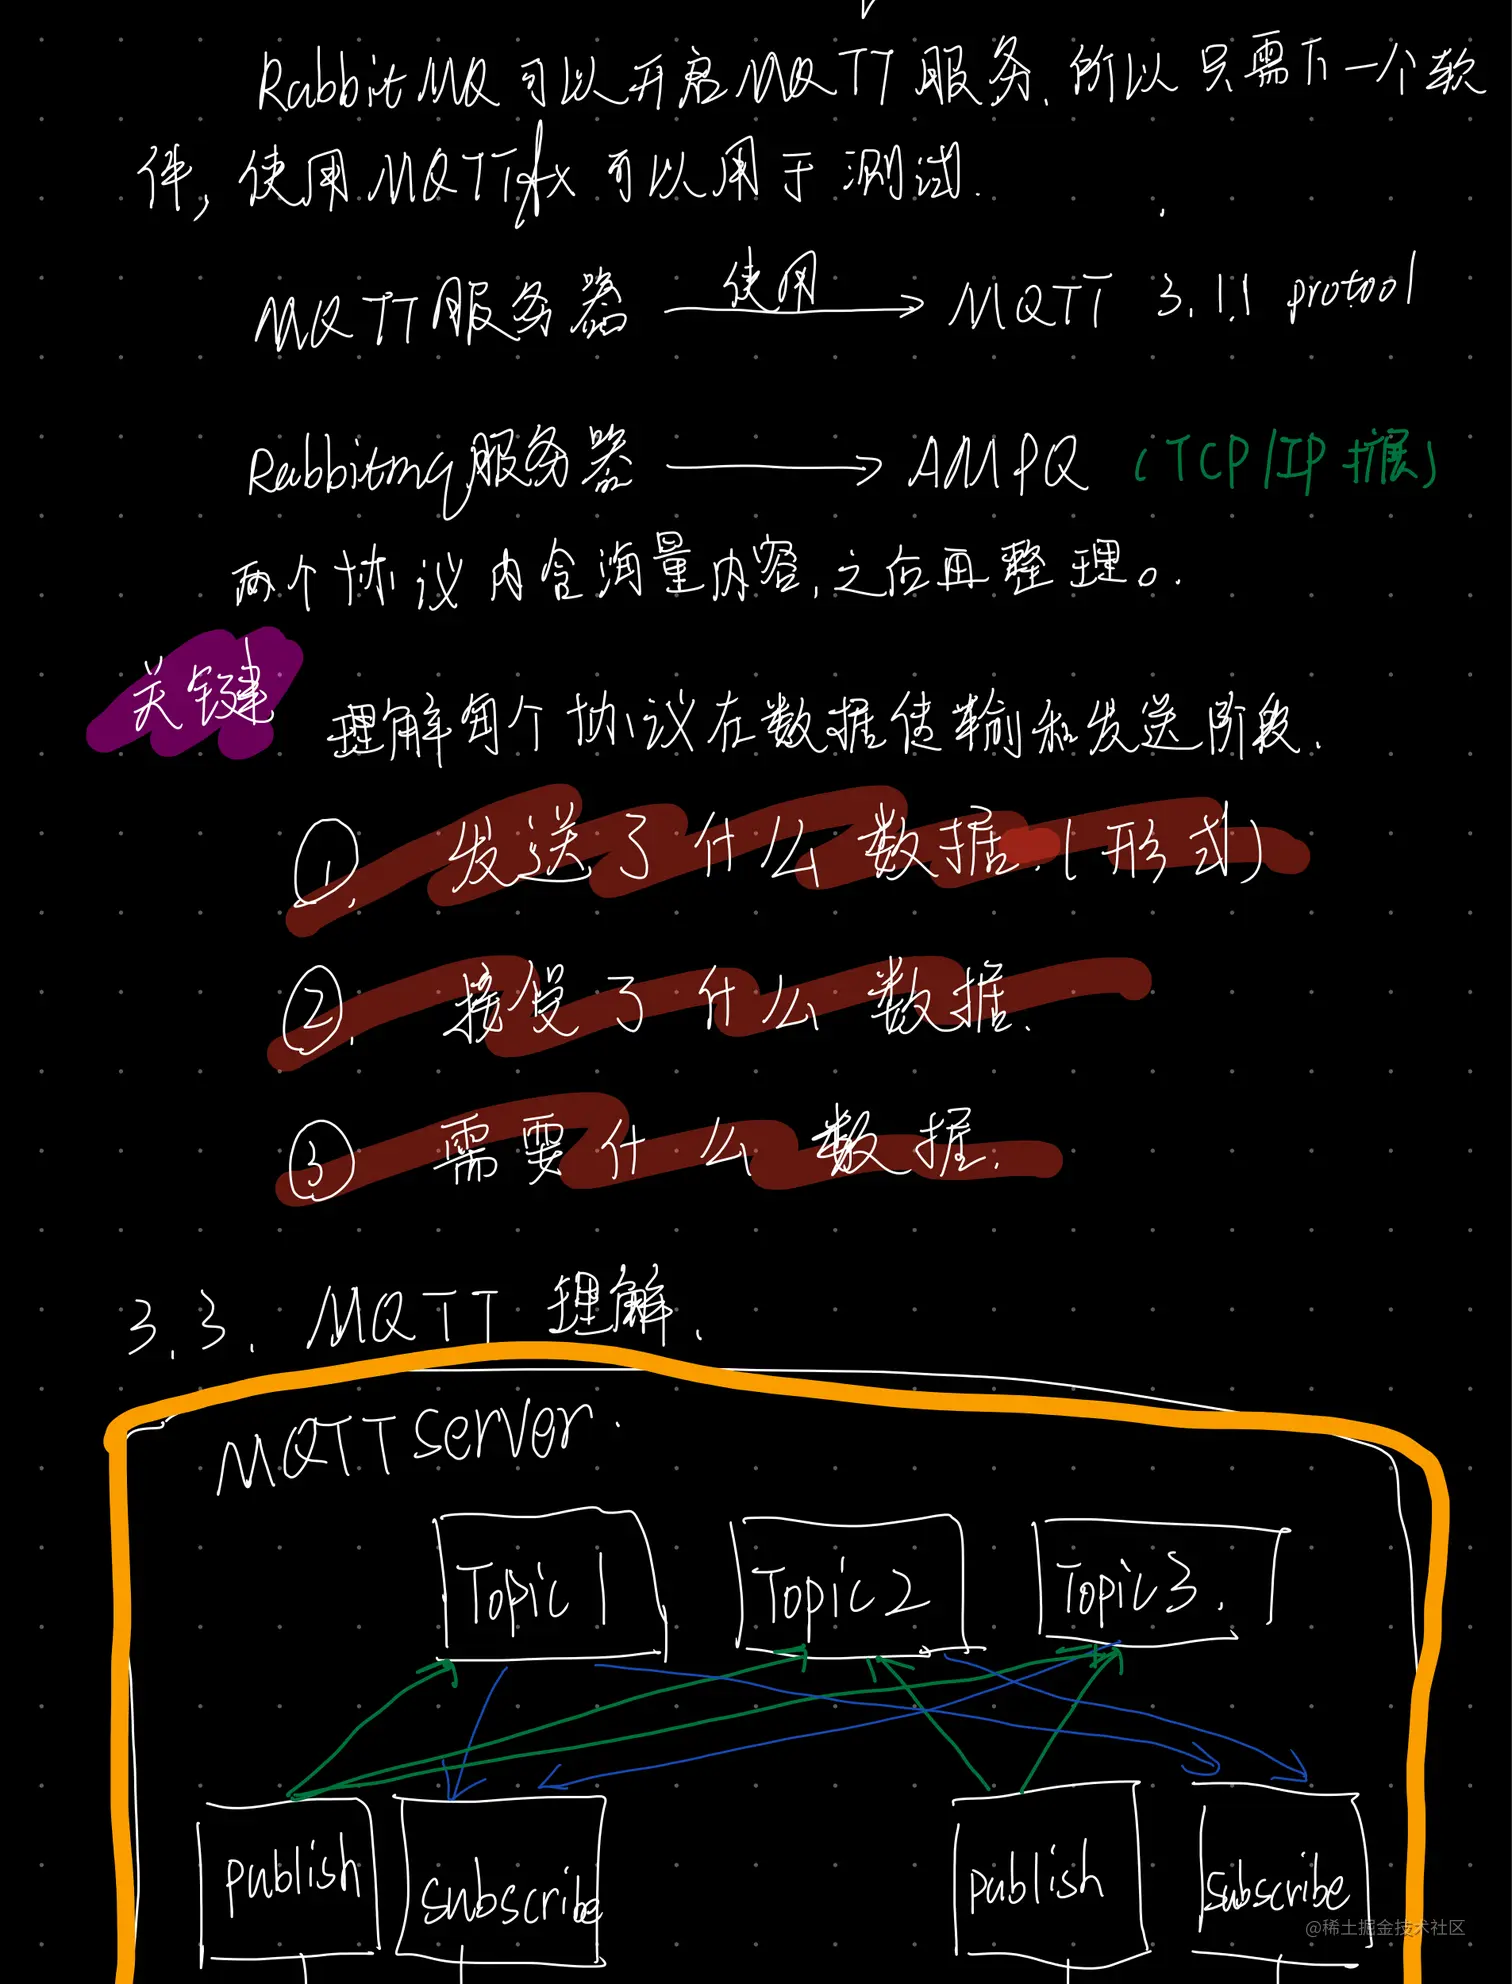 RabbitMQ可以开启MQTT服务.所以只需下一个软
件,使用MQTTfx可以用于测试.
使用
MQTT服务器 → MQTT 3.1.1 protool
Rabbitmq服务器 → AMPQ (TCP/IP扩展)
两个协议内含海量内容,之后再整理。
关键
理解每个协议在数据传输和发送阶段.
①. 发送了什么数据.(形式)
②. 接受了什么数据.
③ 需要什么数据.
3.3. MQTT 理解.
MQTT server.
Topic 1 Topic 2 Topic 3.
publish subscribe publish subscribe
@稀土掘金技术社区